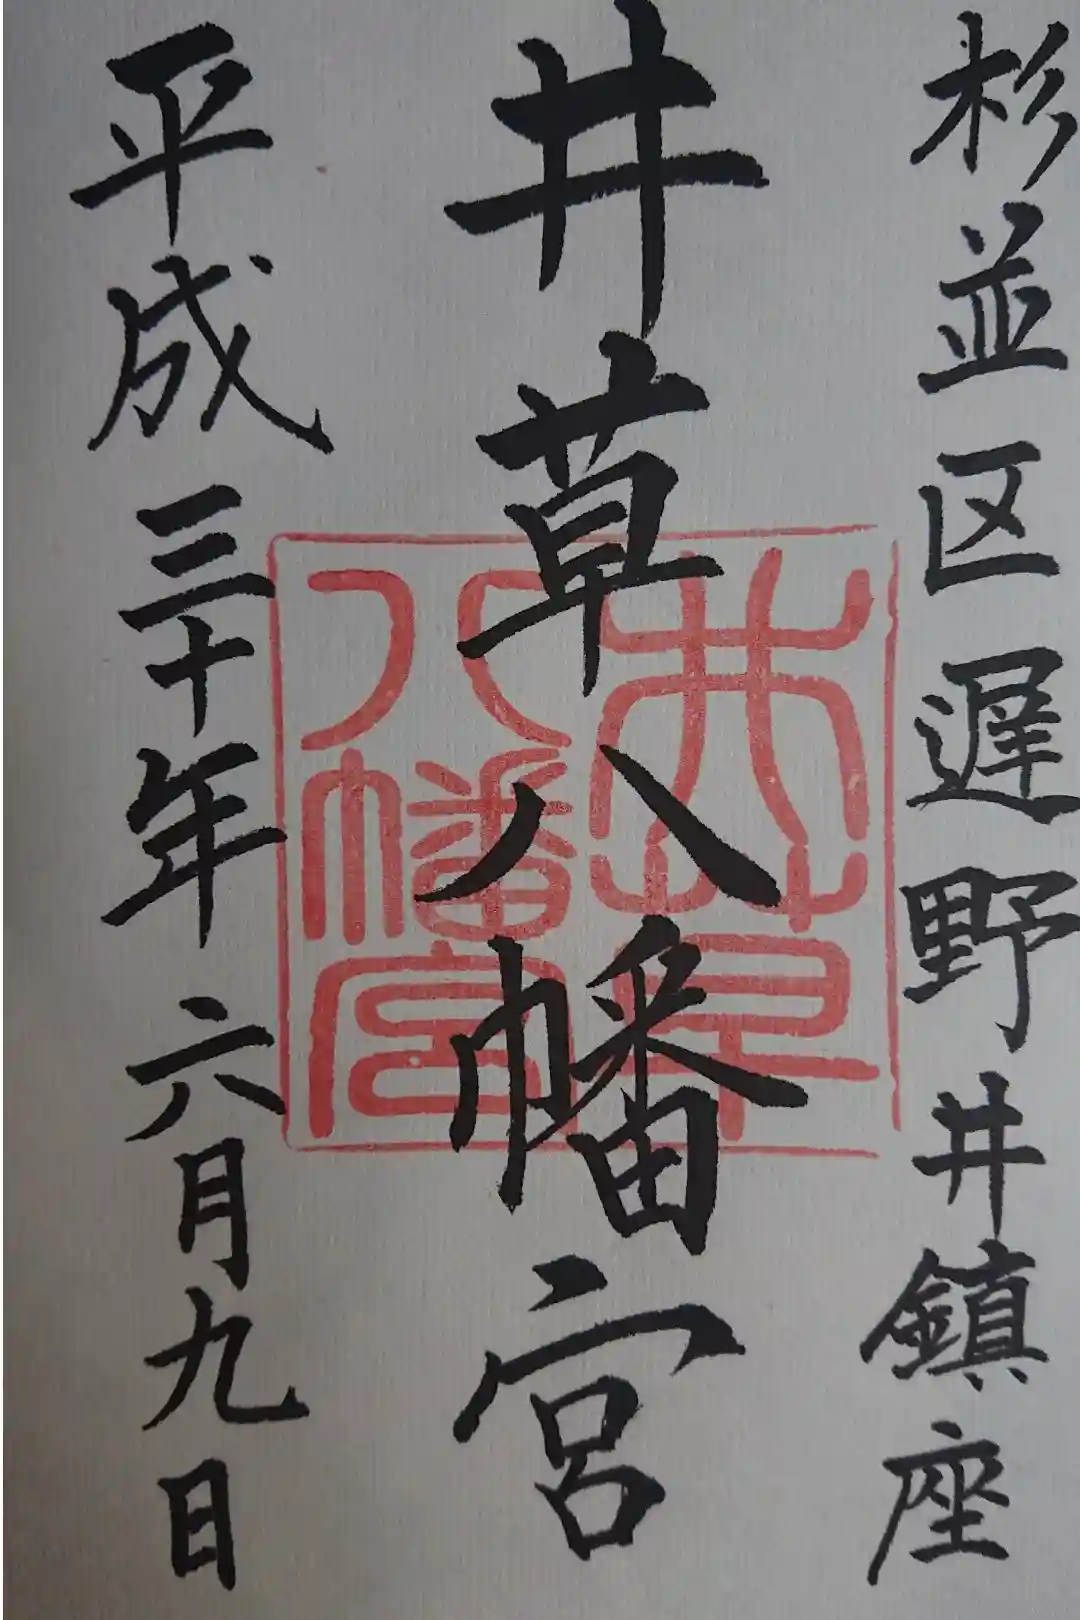 杉並区遅野井鎮座
井草八幡宮
井草八幡宮
平成三十年六月九日